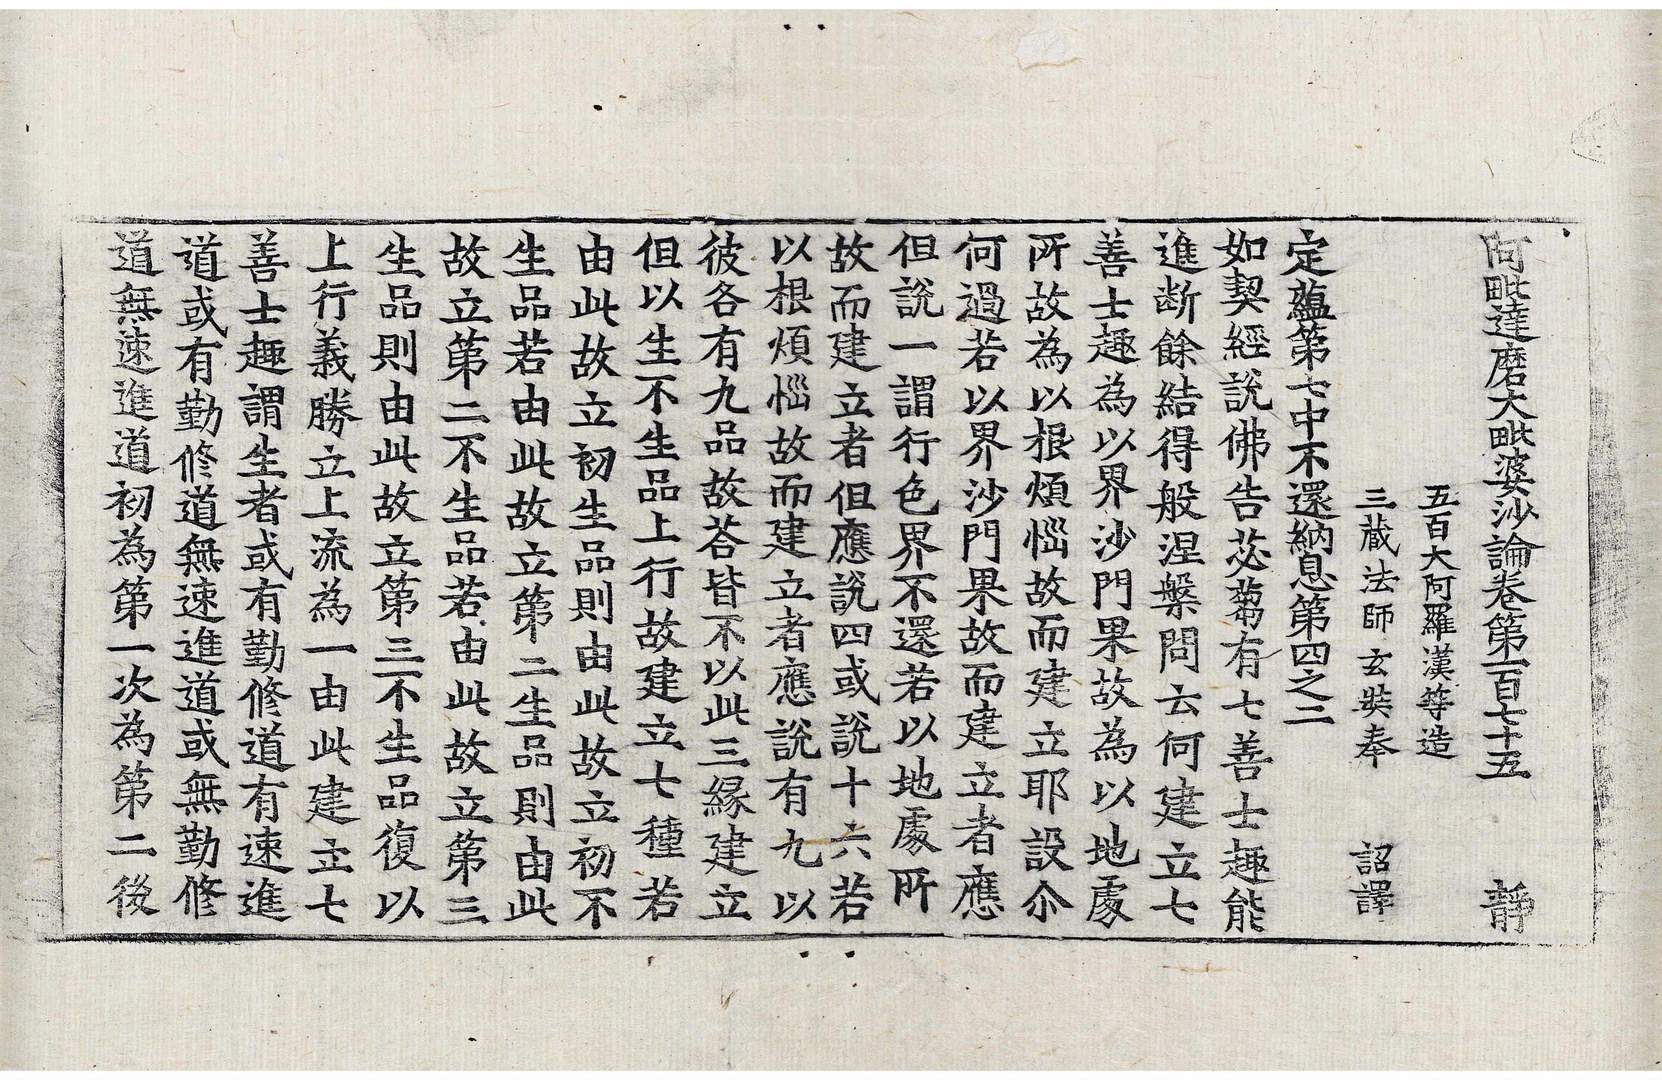 阿毗達磨大毗婆沙論卷第一百七十五　靜
五百大阿羅漢等造
三藏法師玄奘奉　詔譯
定蘊第七中不還納息第四之二
如契經說佛告苾芻有七善士趣能
進斷餘結得般涅槃問云何建立七
善士趣為以界沙門果故為以地處
所故為以根煩惱故而建立耶設尒
何過若以界沙門果故而建立者應
但說一謂行色界不還若以地處所
故而建立者但應說四或說十六若
以根煩惱故而建立者應說有九以
彼各有九品故荅皆不以此三緣建立
但以生不生品上行故建立七種若
由此故立初生品則由此故立初不
生品若由此故立第二生品則由此
故立第二不生品若由此故立第三
生品則由此故立第三不生品復以
上行義勝立上流為一由此建立七
善士趣謂生者或有勤修道有速進
道或有勤修道無速進道或無勤修
道無速進道初為第一次為第二後